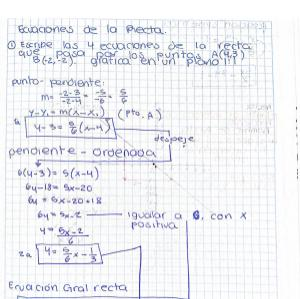 Ecuaciones de la Recta.
① Escribe las 4 ecuaciones de la recta
que pasa por los puntos A(4,3)
B(-2,-2). grafica en un plano!!!
punto-pendiente:
m= -2-3/-2-4 = -5/-6 = 5/6
y-y₁=m(x-x₁) (pto, A)
1a y-3=5/6(x-4)
despeje
pendiente-ordenada
6(y-3)=5(x-4)
6y-18=5x-20
6y=5x-20+18
6y=5x-2 igualar a 0, con x
positiva
y=5x-2/6
2a y=5/6x-1/3
Ecuación Gral recta